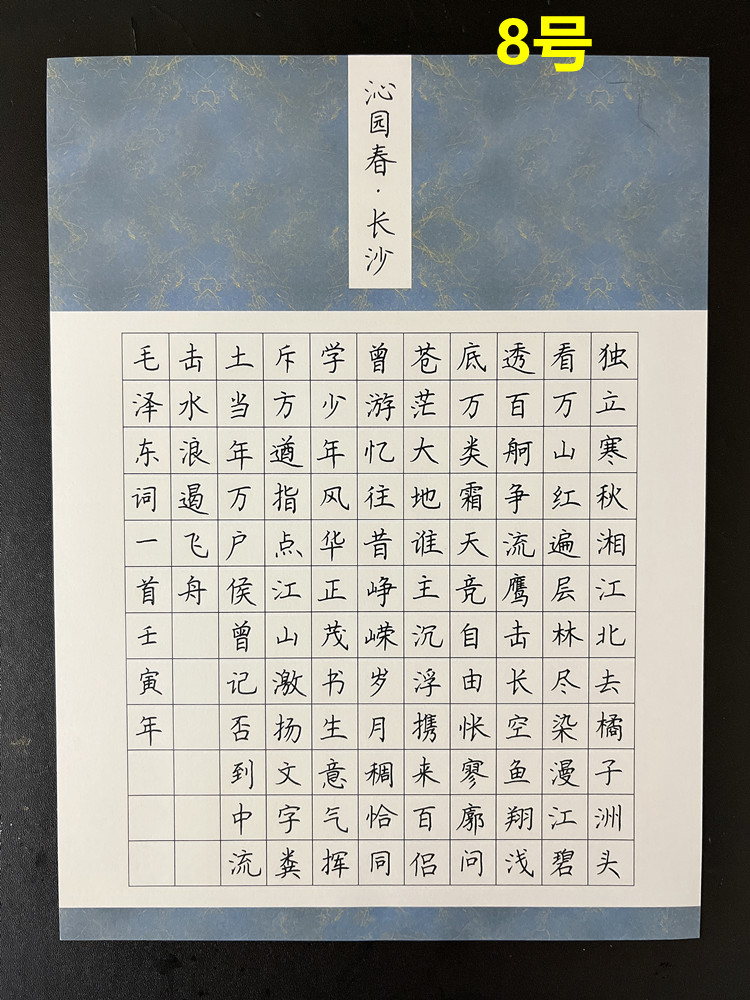 8号
沁园春·长沙
独立寒秋湘江北去橘子洲头
看万山红遍层林尽染漫江碧
透百舸争流鹰击长空鱼翔浅
底万类霜天竞自由怅寥廓问
苍茫大地谁主沉浮携来百侣
曾游忆往昔峥嵘岁月稠恰同
学少年风华正茂书生意气挥
斥方遒指点江山激扬文字粪
土当年万户侯曾记否到中流
击水浪遏飞舟
毛泽东词一首壬寅年